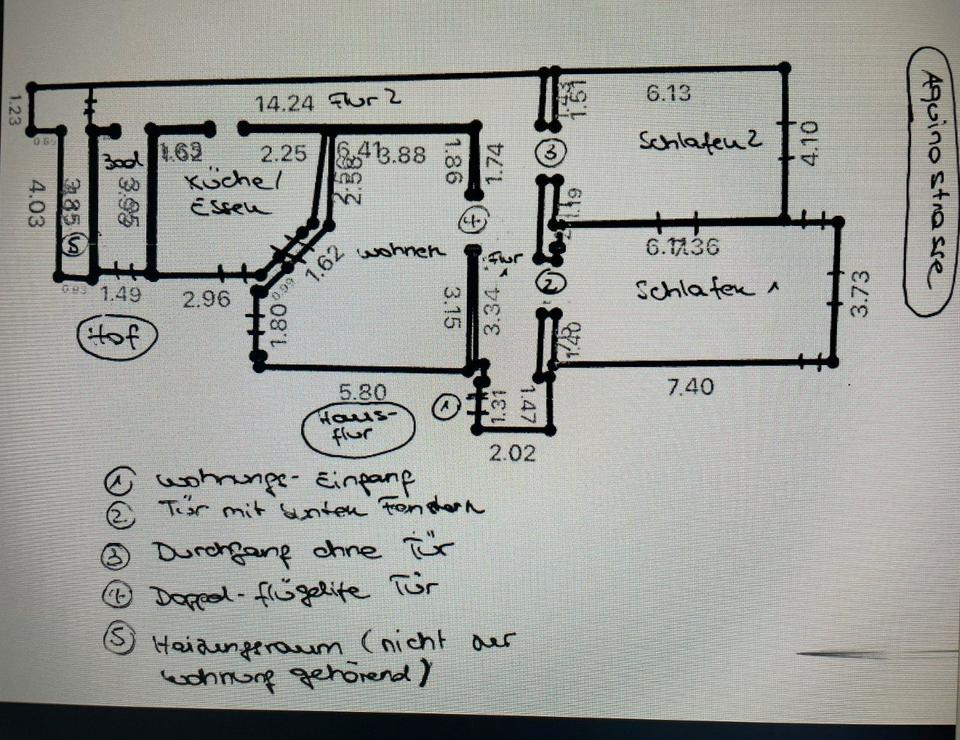 14.24 Flur 2
6.13
Schlafen 2
4.10
1.23
1.51
3
Bad
2.25
6.41
3.88
1.86
1.74
Küche/
Essen
2.58
4.03
3.85
5
3.95
4
1.19
wohnen
Flur
1
2
Schlafen 1
3.73
1.62
0.99
1.49
2.96
1.80
3.15
3.34
1.40
Hof
5.80
7.40
Haus-
flur
1
1.31
1.47
2.02
Aquinostrasse
1 Wohnungs-Eingang
2. Tür mit bunten Fenstern
3 Durchgang ohne Tür
4 Doppel-flügelige Tür
5 Heizungsraum (nicht zur
Wohnung gehörend)